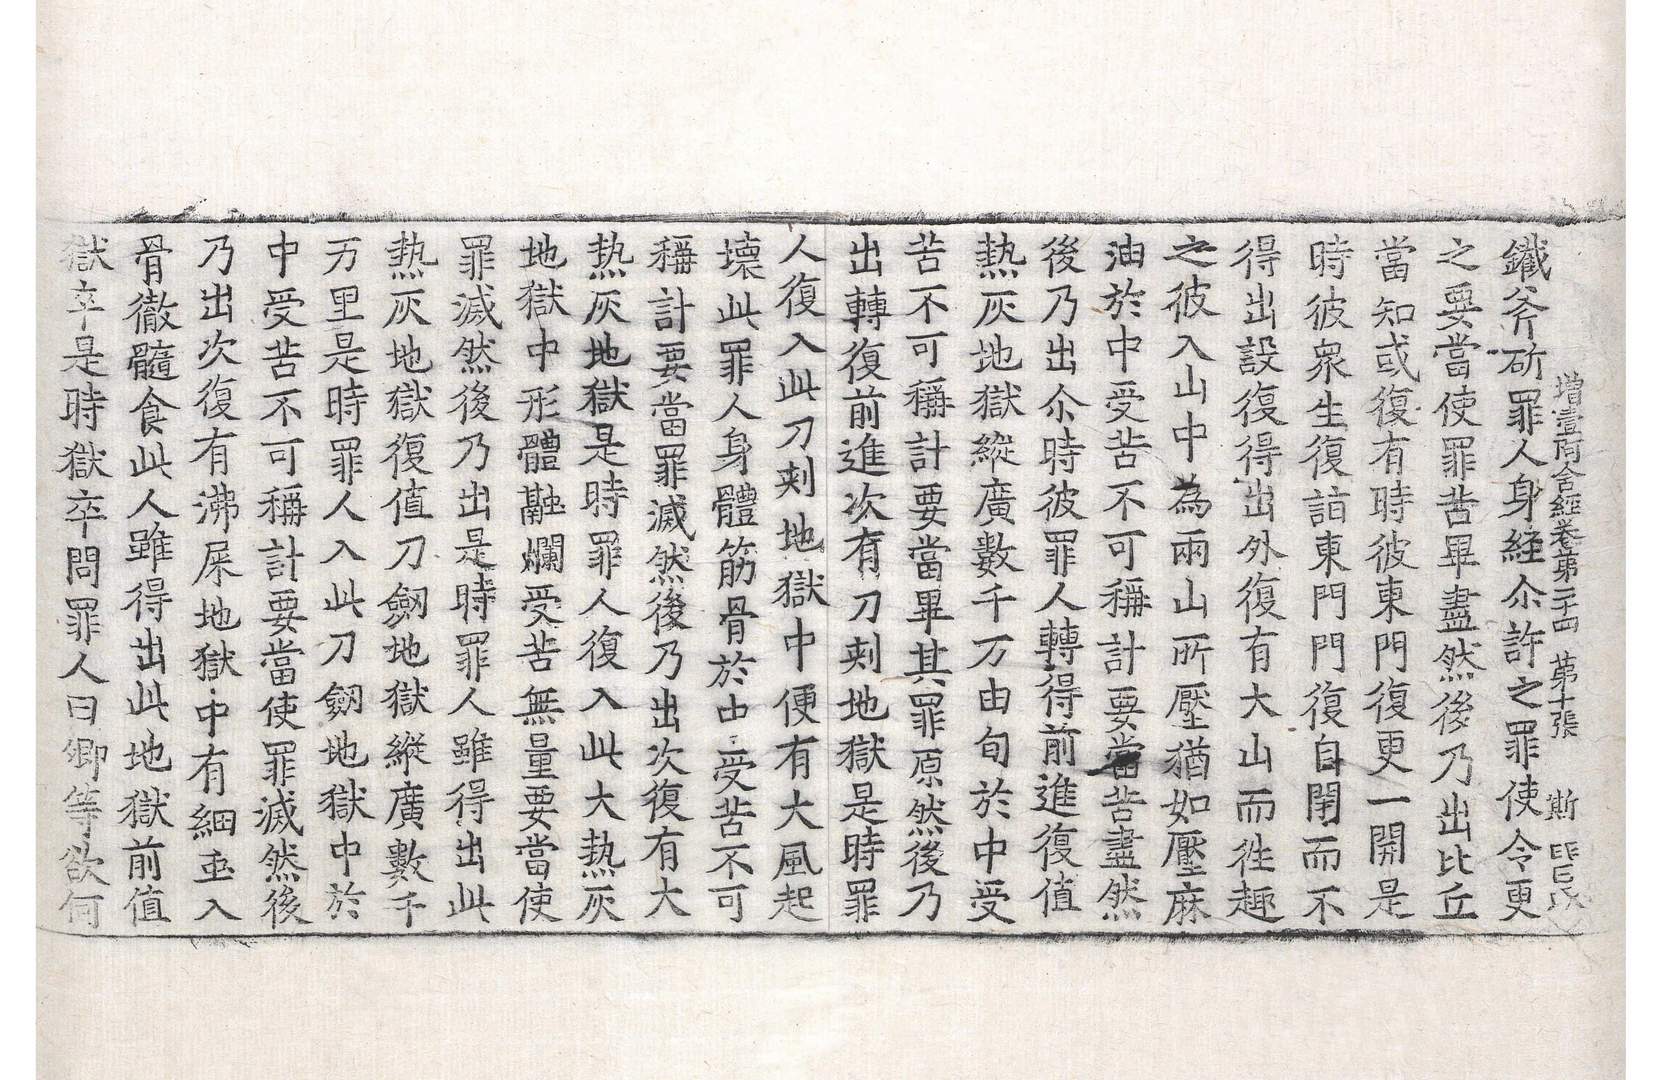 增壹阿含經卷第二十四 第十張 斯
鐵斧斫罪人身經尒許之罪使令更
之要當使罪苦畢盡然後乃出比丘
當知或復有時彼東門復更一開是
時彼衆生復詣東門門復自閉而不
得出設復得出外復有大山而往趣
之彼入山中為兩山所壓猶如壓麻
油於中受苦不可稱計要當苦盡然
後乃出尒時彼罪人轉得前進復值
熱灰地獄縱廣數千万由旬於中受
苦不可稱計要當畢其罪原然後乃
出轉復前進次有刀刾地獄是時罪
人復入此刀刾地獄中便有大風起
壞此罪人身體筋骨於中受苦不可
稱計要當罪滅然後乃出次復有大
熱灰地獄是時罪人復入此大熱灰
地獄中形體融爛受苦無量要當使
罪滅然後乃出是時罪人雖得出此
熱灰地獄復值刀劒地獄縱廣數千
万里是時罪人入此刀劒地獄中於
中受苦不可稱計要當使罪滅然後
乃出次復有沸屎地獄中有細虫入
骨徹髓食此人雖得出此地獄前值
獄卒是時獄卒問罪人曰卿等欲何